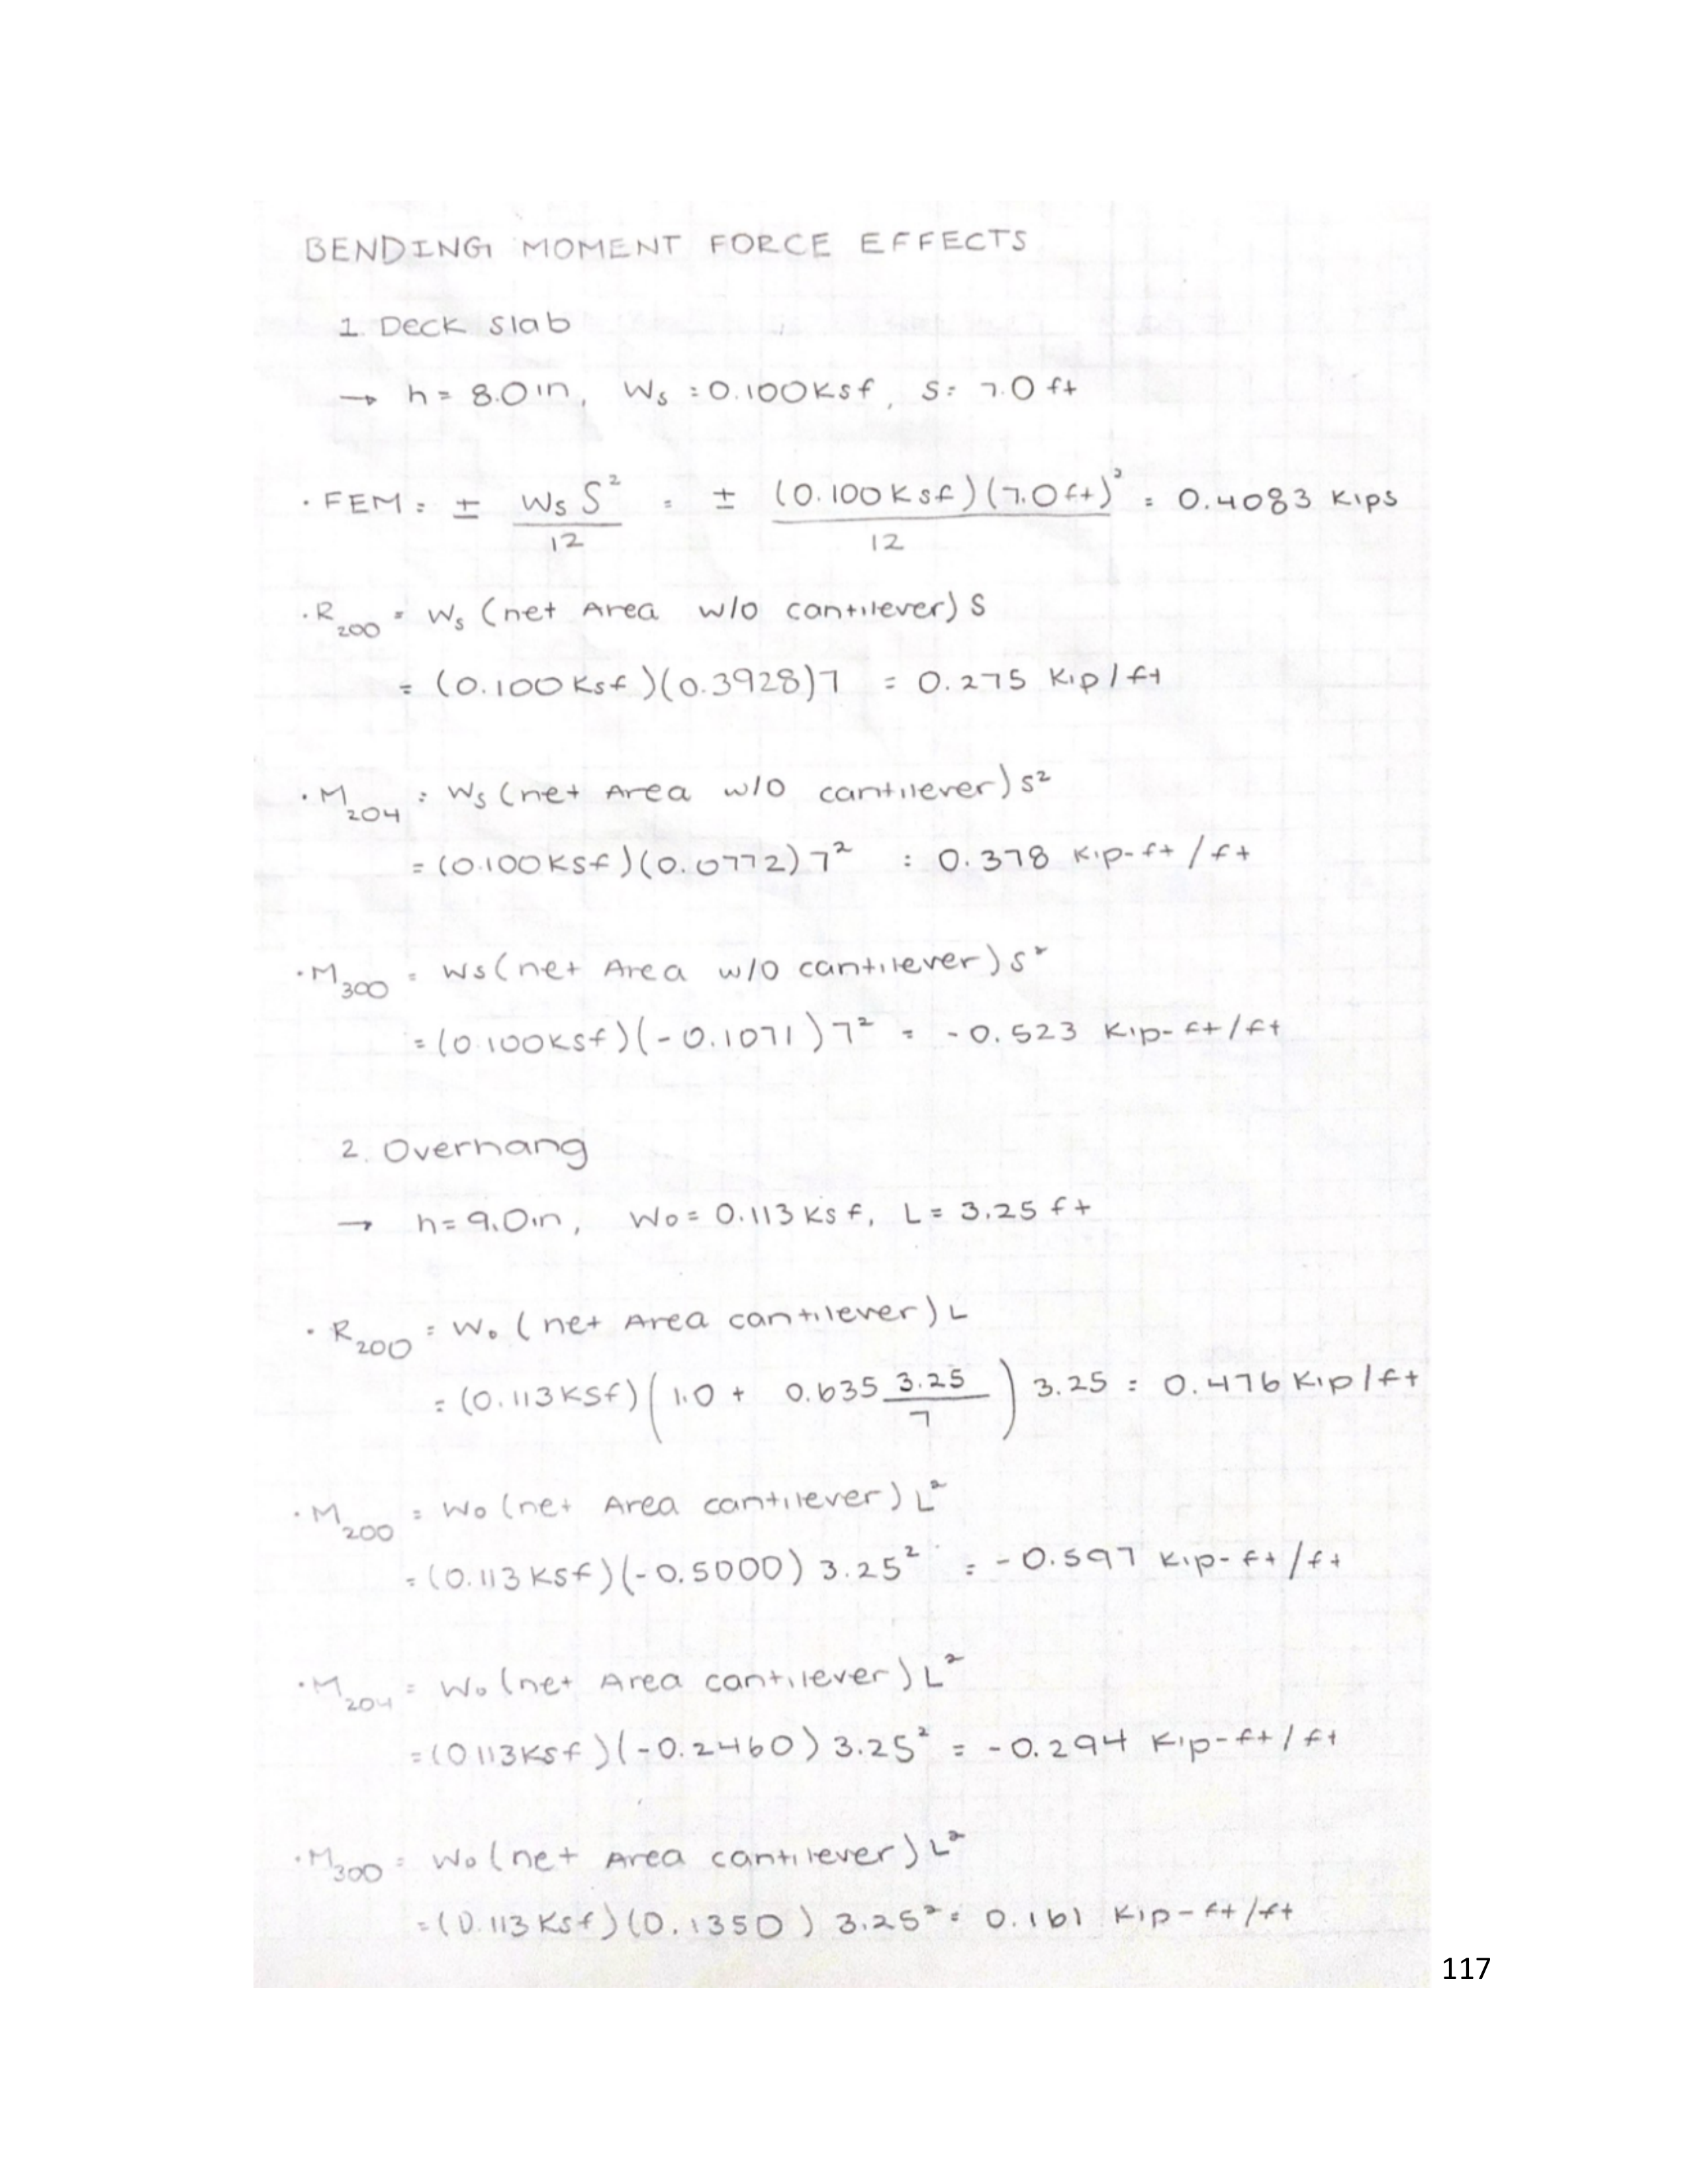 BENDING MOMENT FORCE EFFECTS
1. Deck slab
→ h = 8.0in, Ws = 0.100Ksf, S= 7.0 ft
· FEM = ± Ws S² / 12 = ± (0.100 Ksf)(7.0ft)² / 12 = 0.4083 Kips
· R200 = Ws (net Area w/o cantilever) S
= (0.100 Ksf)(0.3928)7 = 0.275 Kip/ft
· M204 = Ws (net Area w/o cantilever) S²
= (0.100Ksf)(0.0772)7² = 0.378 Kip-ft/ft
· M300 = Ws (net Area w/o cantilever) S²
= (0.100Ksf)(-0.1071)7² = -0.523 Kip-ft/ft
2. Overhang
→ h=9.0in, Wo= 0.113 Ksf, L= 3.25 ft
· R200 = Wo (net Area cantilever) L
= (0.113KSf)(1.0 + 0.635 3.25/7) 3.25 = 0.476 Kip/ft
· M200 = Wo (net Area cantilever) L²
= (0.113 Ksf)(-0.5000) 3.25² = -0.597 Kip-ft/ft
· M204 = Wo (net Area cantilever) L²
= (0.113Ksf)(-0.2460) 3.25² = -0.294 Kip-ft/ft
· M300 = Wo (net Area cantilever) L²
= (0.113 Ksf)(0.1350) 3.25² = 0.161 Kip-ft/ft
117